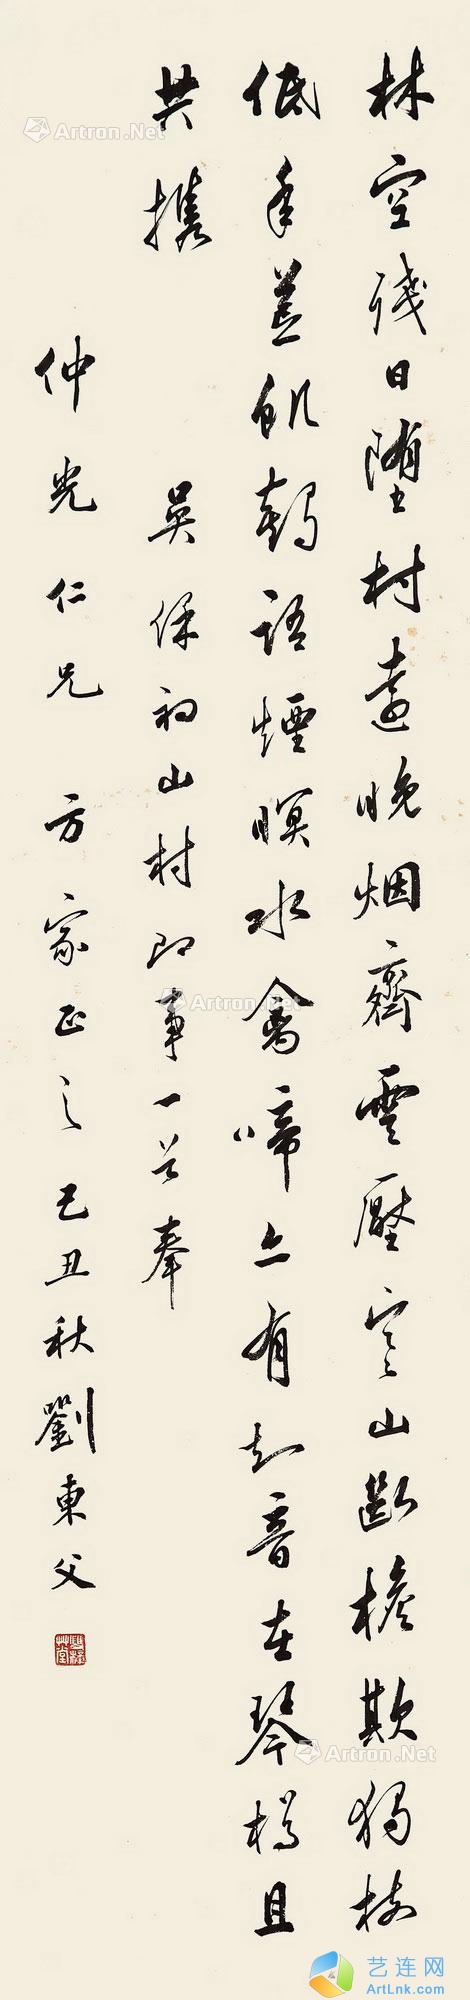 林空殘日墮村遠晚烟齊雲壓寒山斷檐欺獨樹
低年荒飢語煙暝水禽啼亦有知音在琴樽且
共携
吳保初山村即事一首奉
仲光仁兄 方家正之 己丑秋劉東父
Artron.Net
Artron.Net
Artron.Net
艺连网
ArtLnk.com